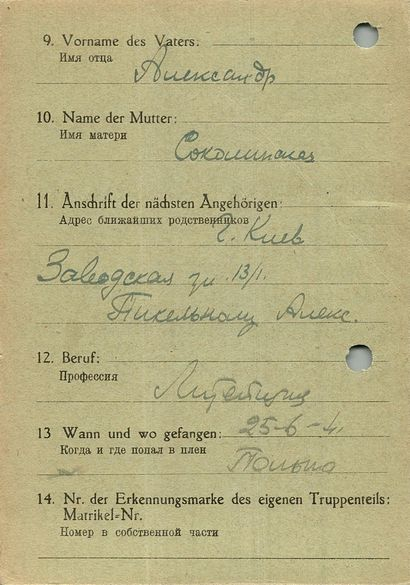 9. Vorname des Vaters:
Имя отца
Александр
10. Name der Mutter:
Имя матери
11. Anschrift der nächsten Angehörigen:
Адрес ближайших родственников
г. Киев
Заводская ул. 13/1.
Алекс.
12. Beruf:
Профессия
13 Wann und wo gefangen: 25-6-4.
Когда и где попал в плен
14. Nr. der Erkennungsmarke des eigenen Truppenteils:
Matrikel-Nr.
Номер в собственной части